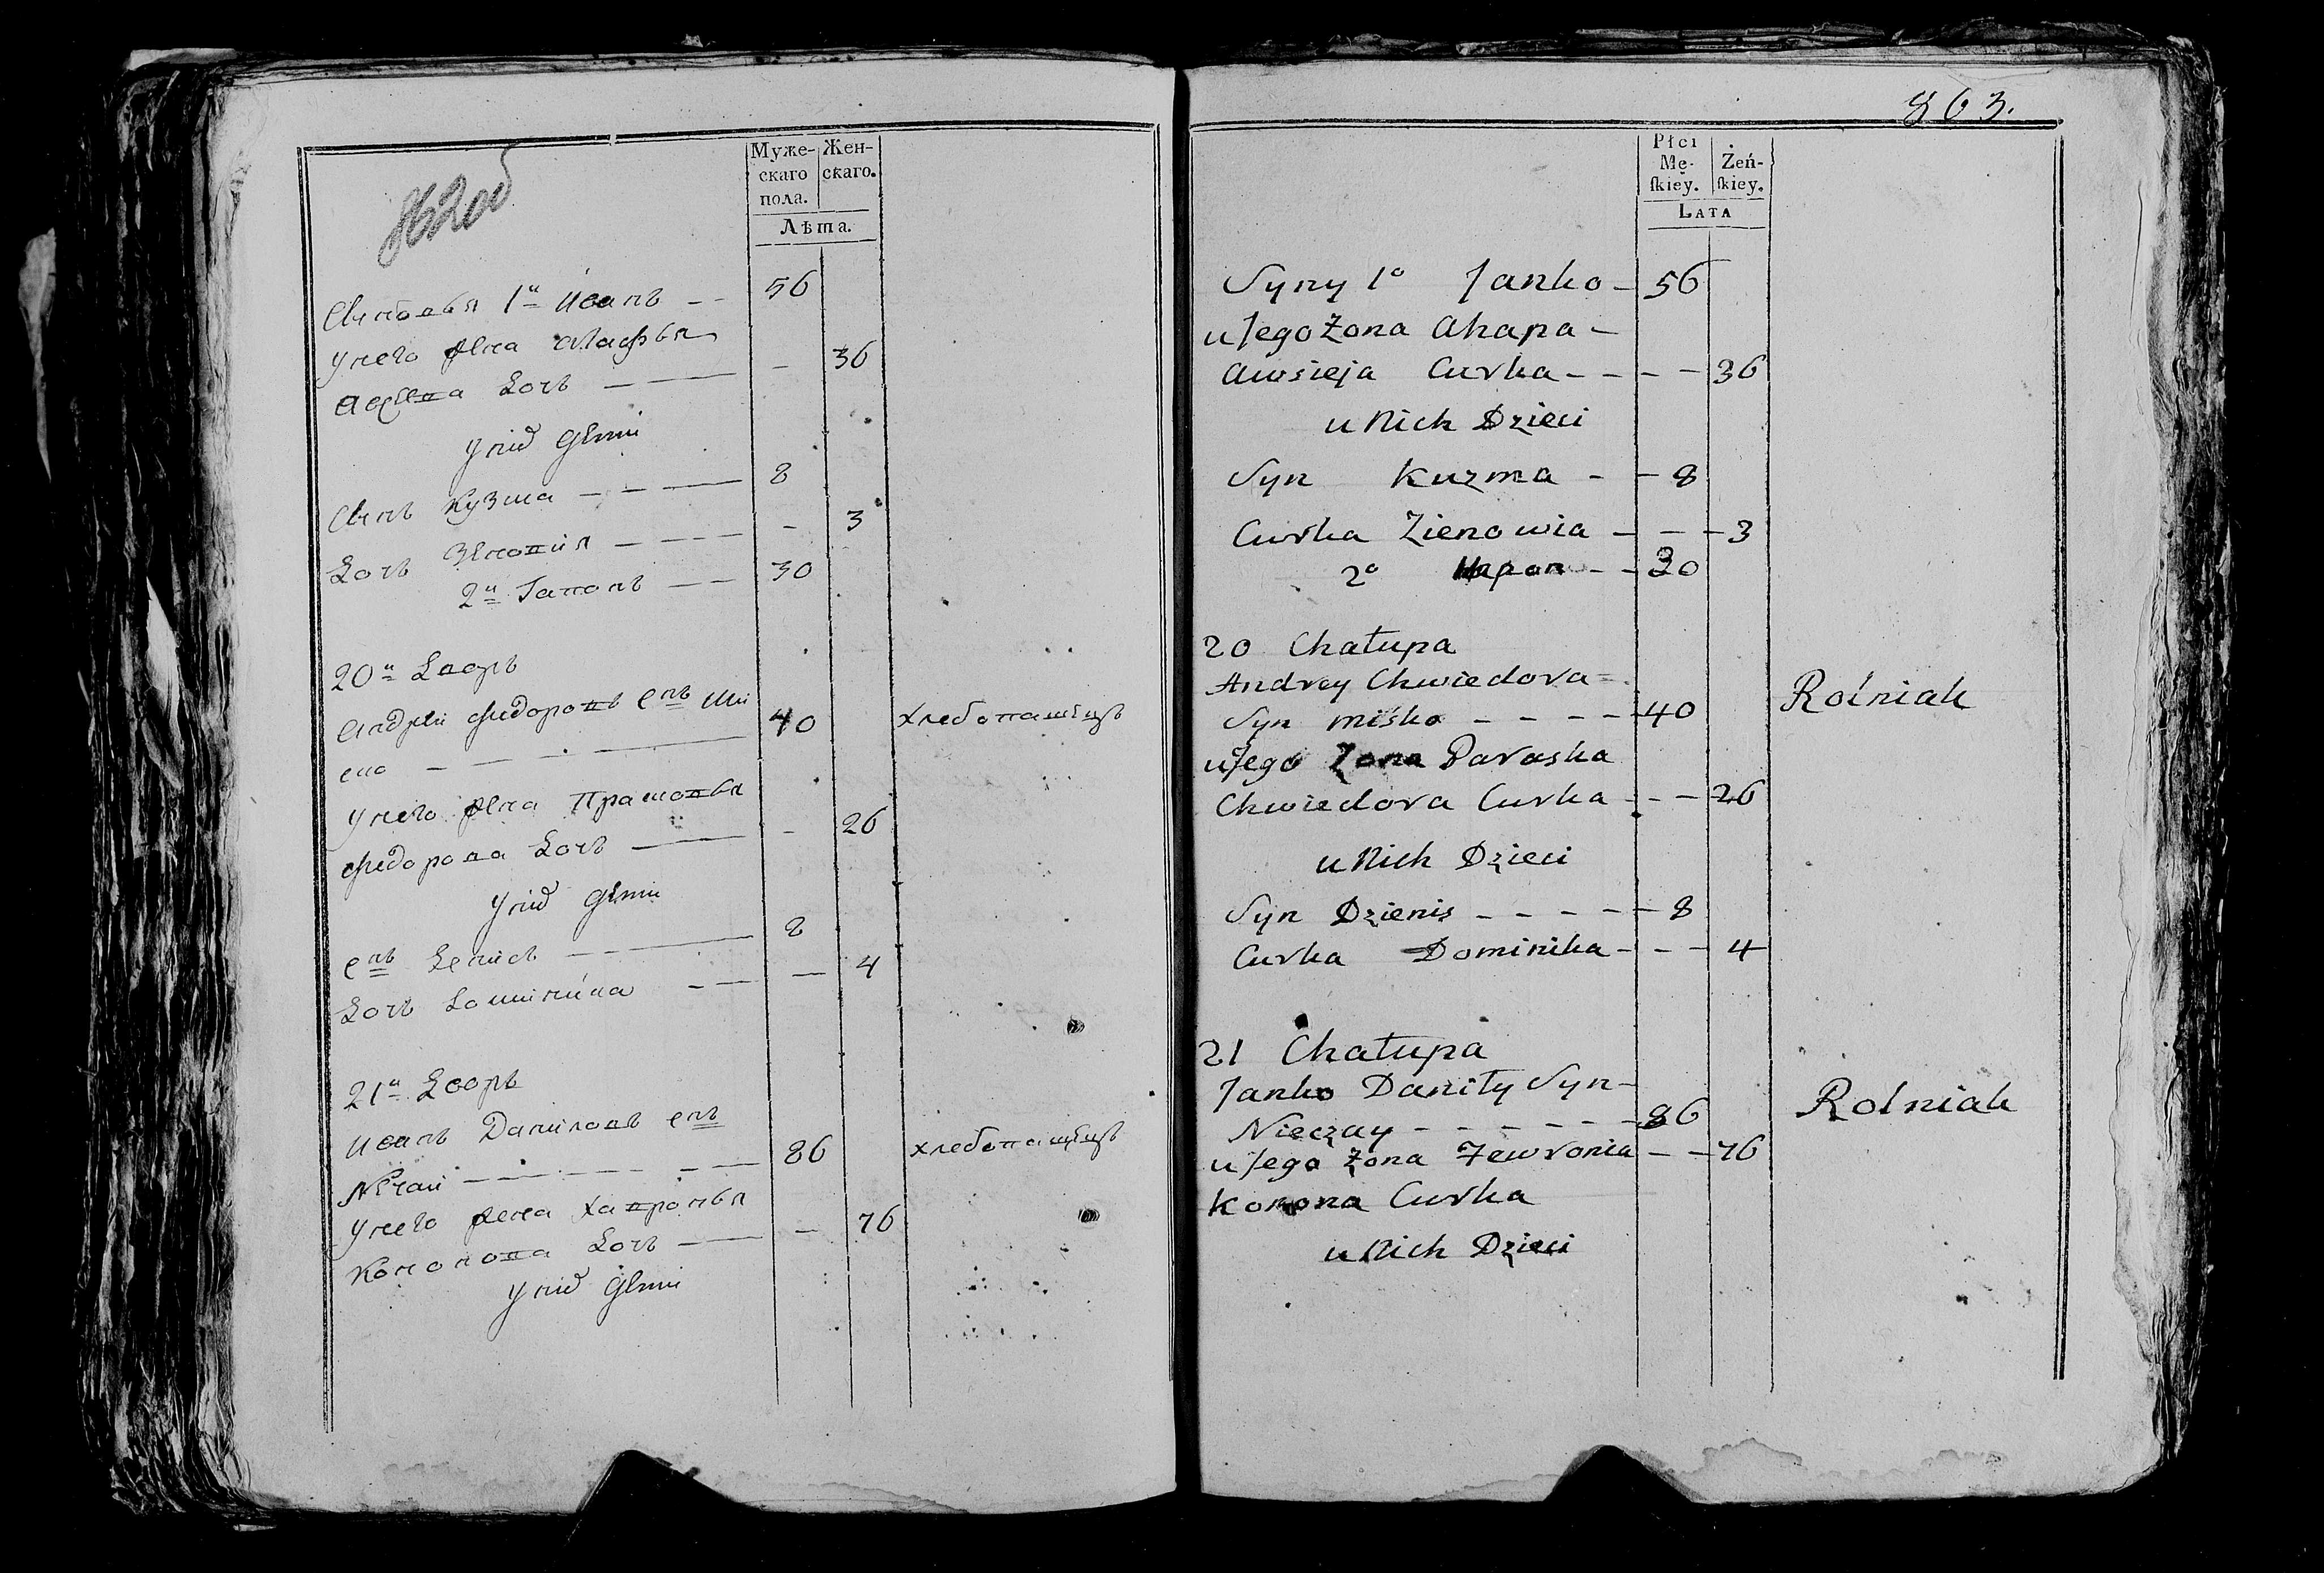 862об
Муже-
скаго
пола.
Жен-
скаго.
Лѣта.
Сыновья 1й Иванъ 56
У него жена Агафья
Авсѣева дочь 36
У нихъ дѣти
Сынъ Кузма 8
Дочь Зеновия 3
2й Гапонъ 30
20й Дворъ
Андрѣй Федоровъ снъ Ми
ско 40 хлебопашецъ
У него жена
Федорова дочь 26
У нихъ дѣти
снъ Денисъ 8
Дочь Доминика 4
21й Дворъ
Иванъ Даниловъ снъ
Нѣчай 86 хлебопашецъ
У него жена Хавронья
Кононова дочь 76
У нихъ дѣти
863.
Płci
Mę-
skiey.
Żeń-
skiey.
LATA
Syny 1o Janko 56
u Jego Żona Ahapa
Awsieja Curka 36
u Nich Dzieci
Syn Kuzma 8
Curka Zienowia 3
2o Hapon 30
20 Chałupa
Andrey Chwiedora
Syn Misko 40 Rolnik
u Jego Żona Paraska
Chwiedora Curka 26
u Nich Dzieci
Syn Dzienis 8
Curka Dominika 4
21 Chałupa
Janko Daniły Syn
Nieczay 86 Rolnik
u Jego Żona Jewronia 76
Konona Curka
u Nich Dzieci